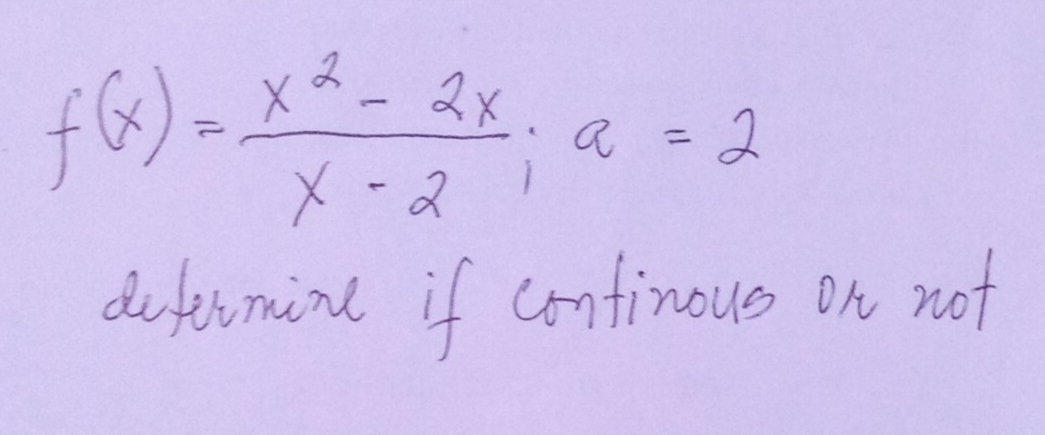 f(x) = \frac{x^2 - 2x}{x - 2}; a = 2
determine if continous or not